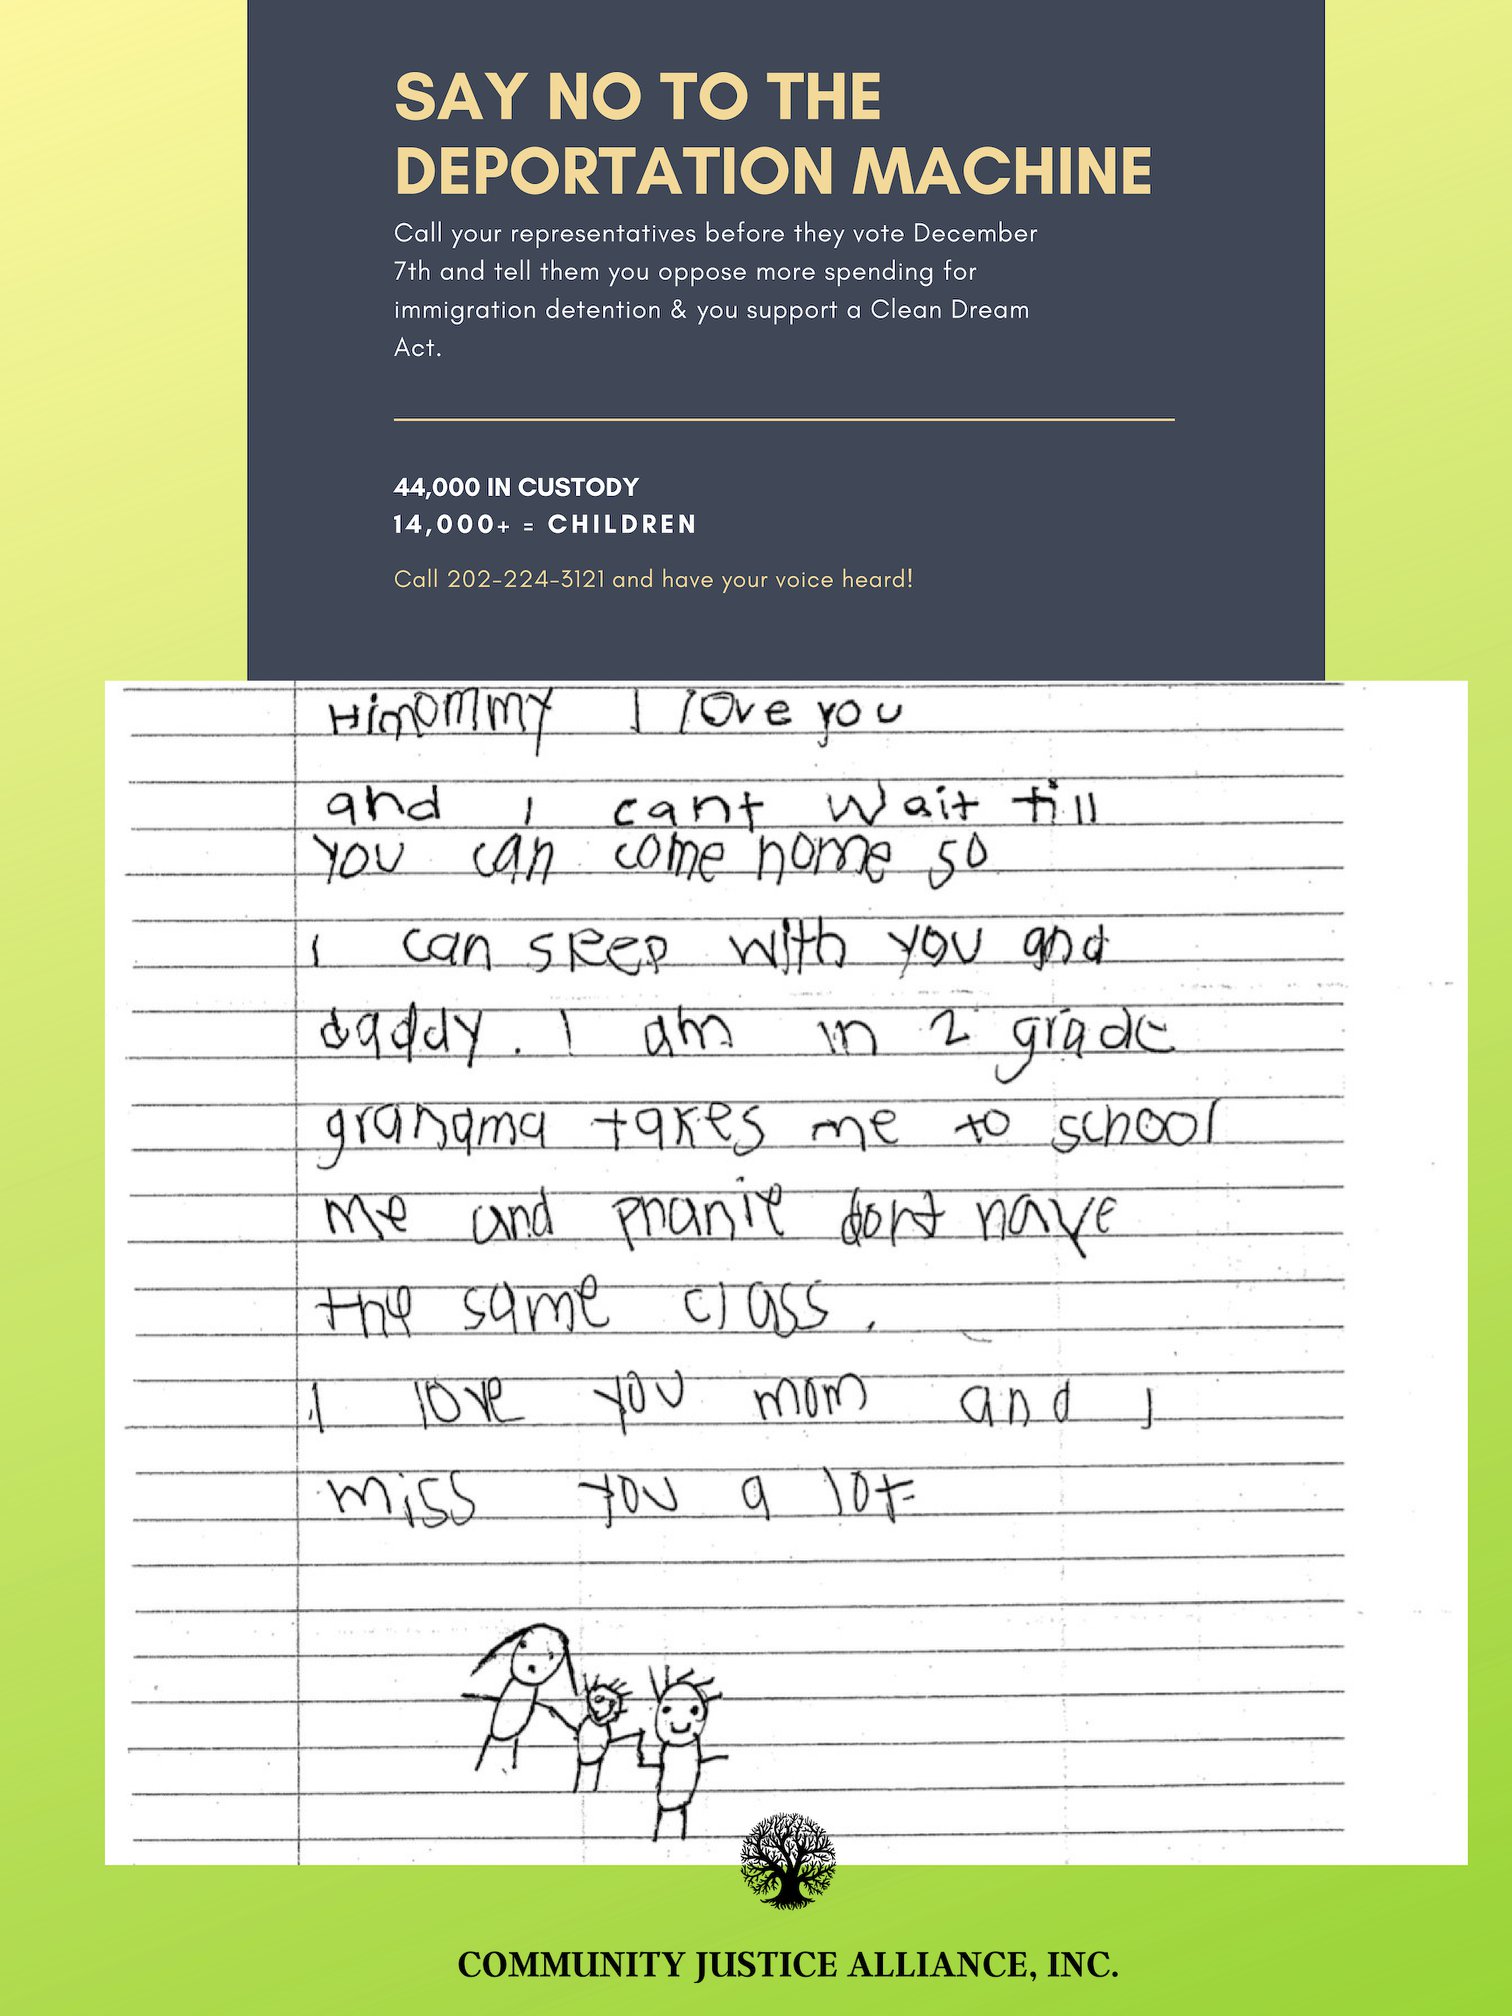 SAY NO TO THE
DEPORTATION MACHINE
Call your representatives before they vote December
7th and tell them you oppose more spending for
immigration detention & you support a Clean Dream
Act.
44,000 IN CUSTODY
14,000+ = CHILDREN
Call 202-224-3121 and have your voice heard!
Hi mommy I love you
and I cant wait till
you can come home so
I can sleep with you and
daddy. I am in 2 grade
grandma takes me to school
me and phanie dont have
the same class.
I love you mom and I
miss you a lot
COMMUNITY JUSTICE ALLIANCE, INC.